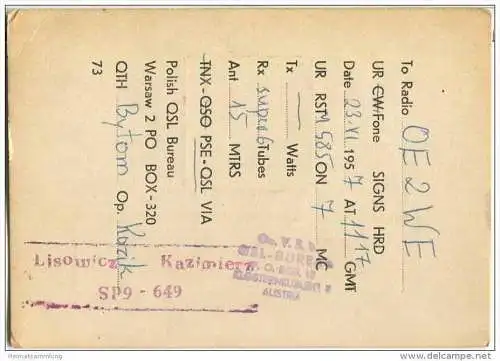 To Radio OE2WE
UR CW/Fone SIGNS HRD
Date 23.VI. 1957 AT 1117 GMT
UR RSTM 585 ON 7 MC
Tx — Watts
Rx super 6 Tubes
Ant 15 MTRS
TNX-QSO PSE-QSL VIA
Polish QSL Bureau
Warsaw 2 PO BOX-320
QTH Bytom Op. Kazik
73
Lisowicz Kazimierz
SP9-649
Oe. V. S. V.
QSL-BUREAU
P. O. BOX
KLOSTERNEUBURG 2
AUSTRIA
Heimatsammlung.de
www.delcampe.net